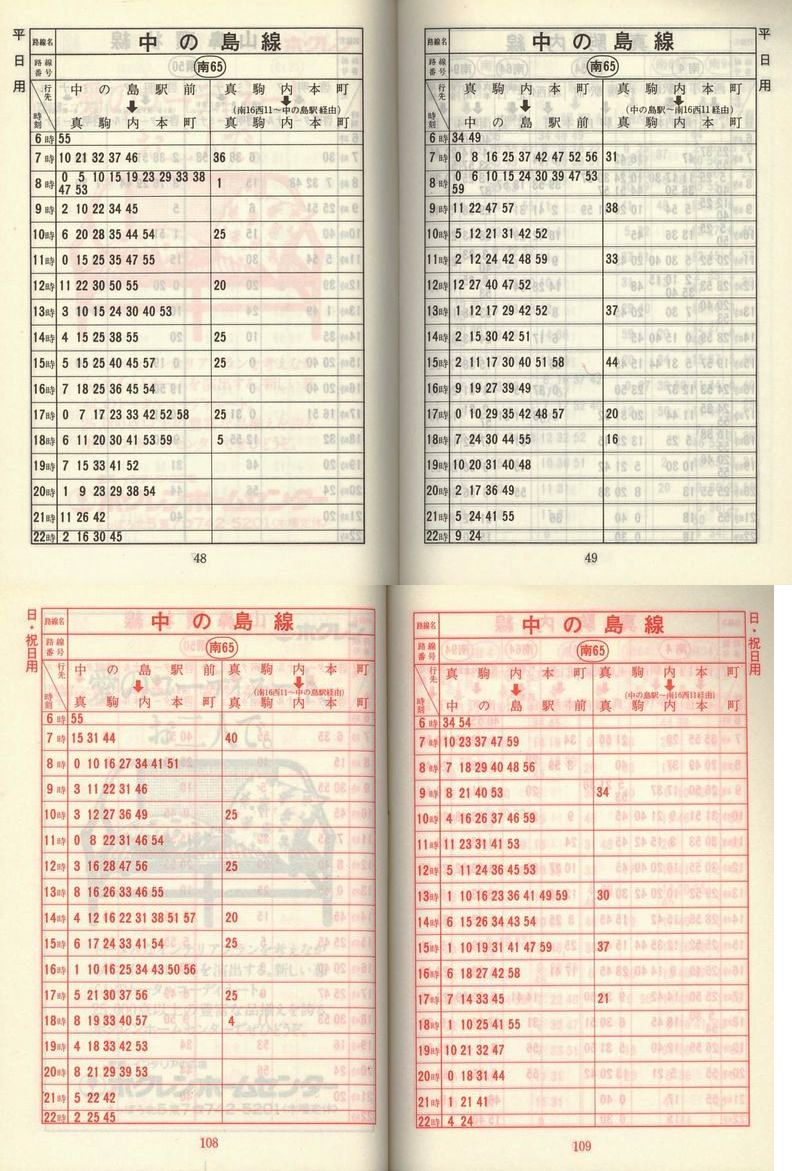 平日用
路線名 中の島線
路線番号 南65
行先 時刻 中の島駅前 真駒内本町
↓ ↓
(南16西11〜中の島駅経由)
真駒内本町 真駒内本町
6時 55
7時 10 21 32 37 46 36
8時 0 5 10 15 19 23 29 33 38 1
47 53
9時 2 10 22 34 45
10時 6 20 28 35 44 54 25
11時 0 15 25 35 47 55
12時 11 22 30 50 55 20
13時 3 10 15 24 30 40 53
14時 4 15 25 38 55 25
15時 5 15 25 40 45 57 25
16時 7 18 25 36 45 54
17時 0 7 17 23 33 42 52 58 25
18時 6 11 20 30 41 53 59 5
19時 7 15 33 41 52
20時 1 9 23 29 38 54
21時 11 26 42
22時 2 16 30 45
48
平日用
路線名 中の島線
路線番号 南65
行先 時刻 真駒内本町 真駒内本町
↓ ↓
(中の島駅〜南16西11経由)
中の島駅前 真駒内本町
6時 34 49
7時 0 8 16 25 37 42 47 52 56 31
8時 0 6 10 15 24 30 39 47 53
59
9時 11 22 47 57 38
10時 5 12 21 31 42 52
11時 2 12 24 42 48 59 33
12時 12 27 40 47 52
13時 1 12 17 29 42 52 37
14時 2 15 30 42 51
15時 2 11 17 30 40 51 58 44
16時 9 19 27 39 49
17時 0 10 29 35 42 48 57 20
18時 7 24 30 44 55 16
19時 10 20 31 40 48
20時 2 17 36 49
21時 5 24 41 55
22時 9 24
49
日・祝日用
路線名 中の島線
路線番号 南65
行先 時刻 中の島駅前 真駒内本町
↓ ↓
(南16西11〜中の島駅経由)
真駒内本町 真駒内本町
6時 55
7時 15 31 44 40
8時 0 10 16 27 34 41 51
9時 3 11 22 31 46
10時 3 12 27 36 49 25
11時 0 8 22 31 46 54
12時 3 16 28 47 56 25
13時 8 16 26 33 46 55
14時 4 12 16 22 31 38 51 57 20
15時 6 17 24 33 41 54 25
16時 1 10 16 25 34 43 50 56
17時 5 21 30 37 56 25
18時 8 19 33 40 57 4
19時 4 18 33 42 53
20時 8 21 29 39 53
21時 5 22 42
22時 2 25 45
108
日・祝日用
路線名 中の島線
路線番号 南65
行先 時刻 真駒内本町 真駒内本町
↓ ↓
(中の島駅〜南16西11経由)
中の島駅前 真駒内本町
6時 34 54
7時 10 23 37 47 59
8時 7 18 29 40 48 56
9時 8 21 40 53 34
10時 4 16 26 37 46 59
11時 11 23 31 41 53
12時 5 11 24 36 45 53
13時 1 10 16 23 36 41 49 59 30
14時 6 15 26 34 43 54
15時 1 10 19 31 41 47 59 37
16時 6 18 27 42 58
17時 7 14 33 45 21
18時 1 10 25 41 55
19時 10 21 32 47
20時 0 18 31 44
21時 1 21 41
22時 4 24
109